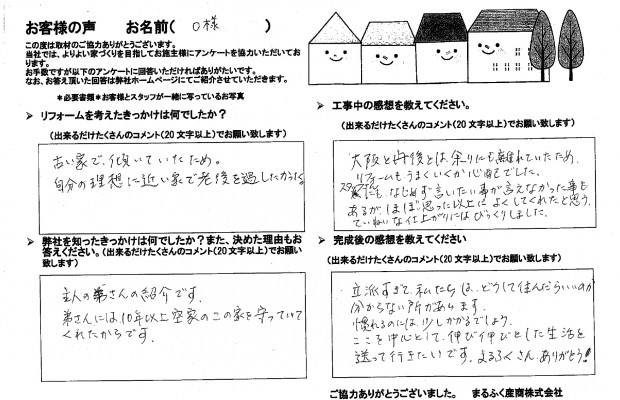 お客様の声　お名前(　O様　)
この度は取材のご協力ありがとうございます。
当社では、よりよい家づくりを目指してお施主様にアンケートを協力いただいてお
ります。
お手数ですが以下のアンケートに回答いただければありがたいです。
なお、お答え頂いた回答は弊社ホームページにてご紹介させていただきます。
＊必要書類＊お客様とスタッフが一緒に写っているお写真
➢ リフォームを考えたきっかけは何でしたか？
（出来るだけたくさんのコメント（20文字以上）でお願い致します）
古い家で、傾いていたため。
自分の理想に近い家で老後を過したかった。
➢ 弊社を知ったきっかけは何でしたか？また、決めた理由もお
答えください。（出来るだけたくさんのコメント（20文字以上）でお願い
致します）
主人の弟さんの紹介です。
弟さんには10年以上空家のこの家を守っていて
くれたからです。
➢ 工事中の感想を教えてください。
（出来るだけたくさんのコメント（20文字以上）でお願い致します）
大阪と丹後とは、余りにも離れていたため、
リフォームもうまくいくか心配でした。
にも、なじめず言いたい事が言えなかった事も
あるが、ほぼ思った以上によくしてくれたと思う。
ていねいな仕上がりにはびっくりしました。
➢ 完成後の感想を教えてください
（出来るだけたくさんのコメント（20文字以上）でお願い致します）
立派すぎて、私たちは、どうして住んだらいいのか
分からない所があります。
慣れるのには、少しかかるでしょう。
ここを中心として、伸び伸びとした生活を
送って行きたいです。まるふくさん、ありがとう！
ご協力ありがとうございました。　まるふく産商株式会社